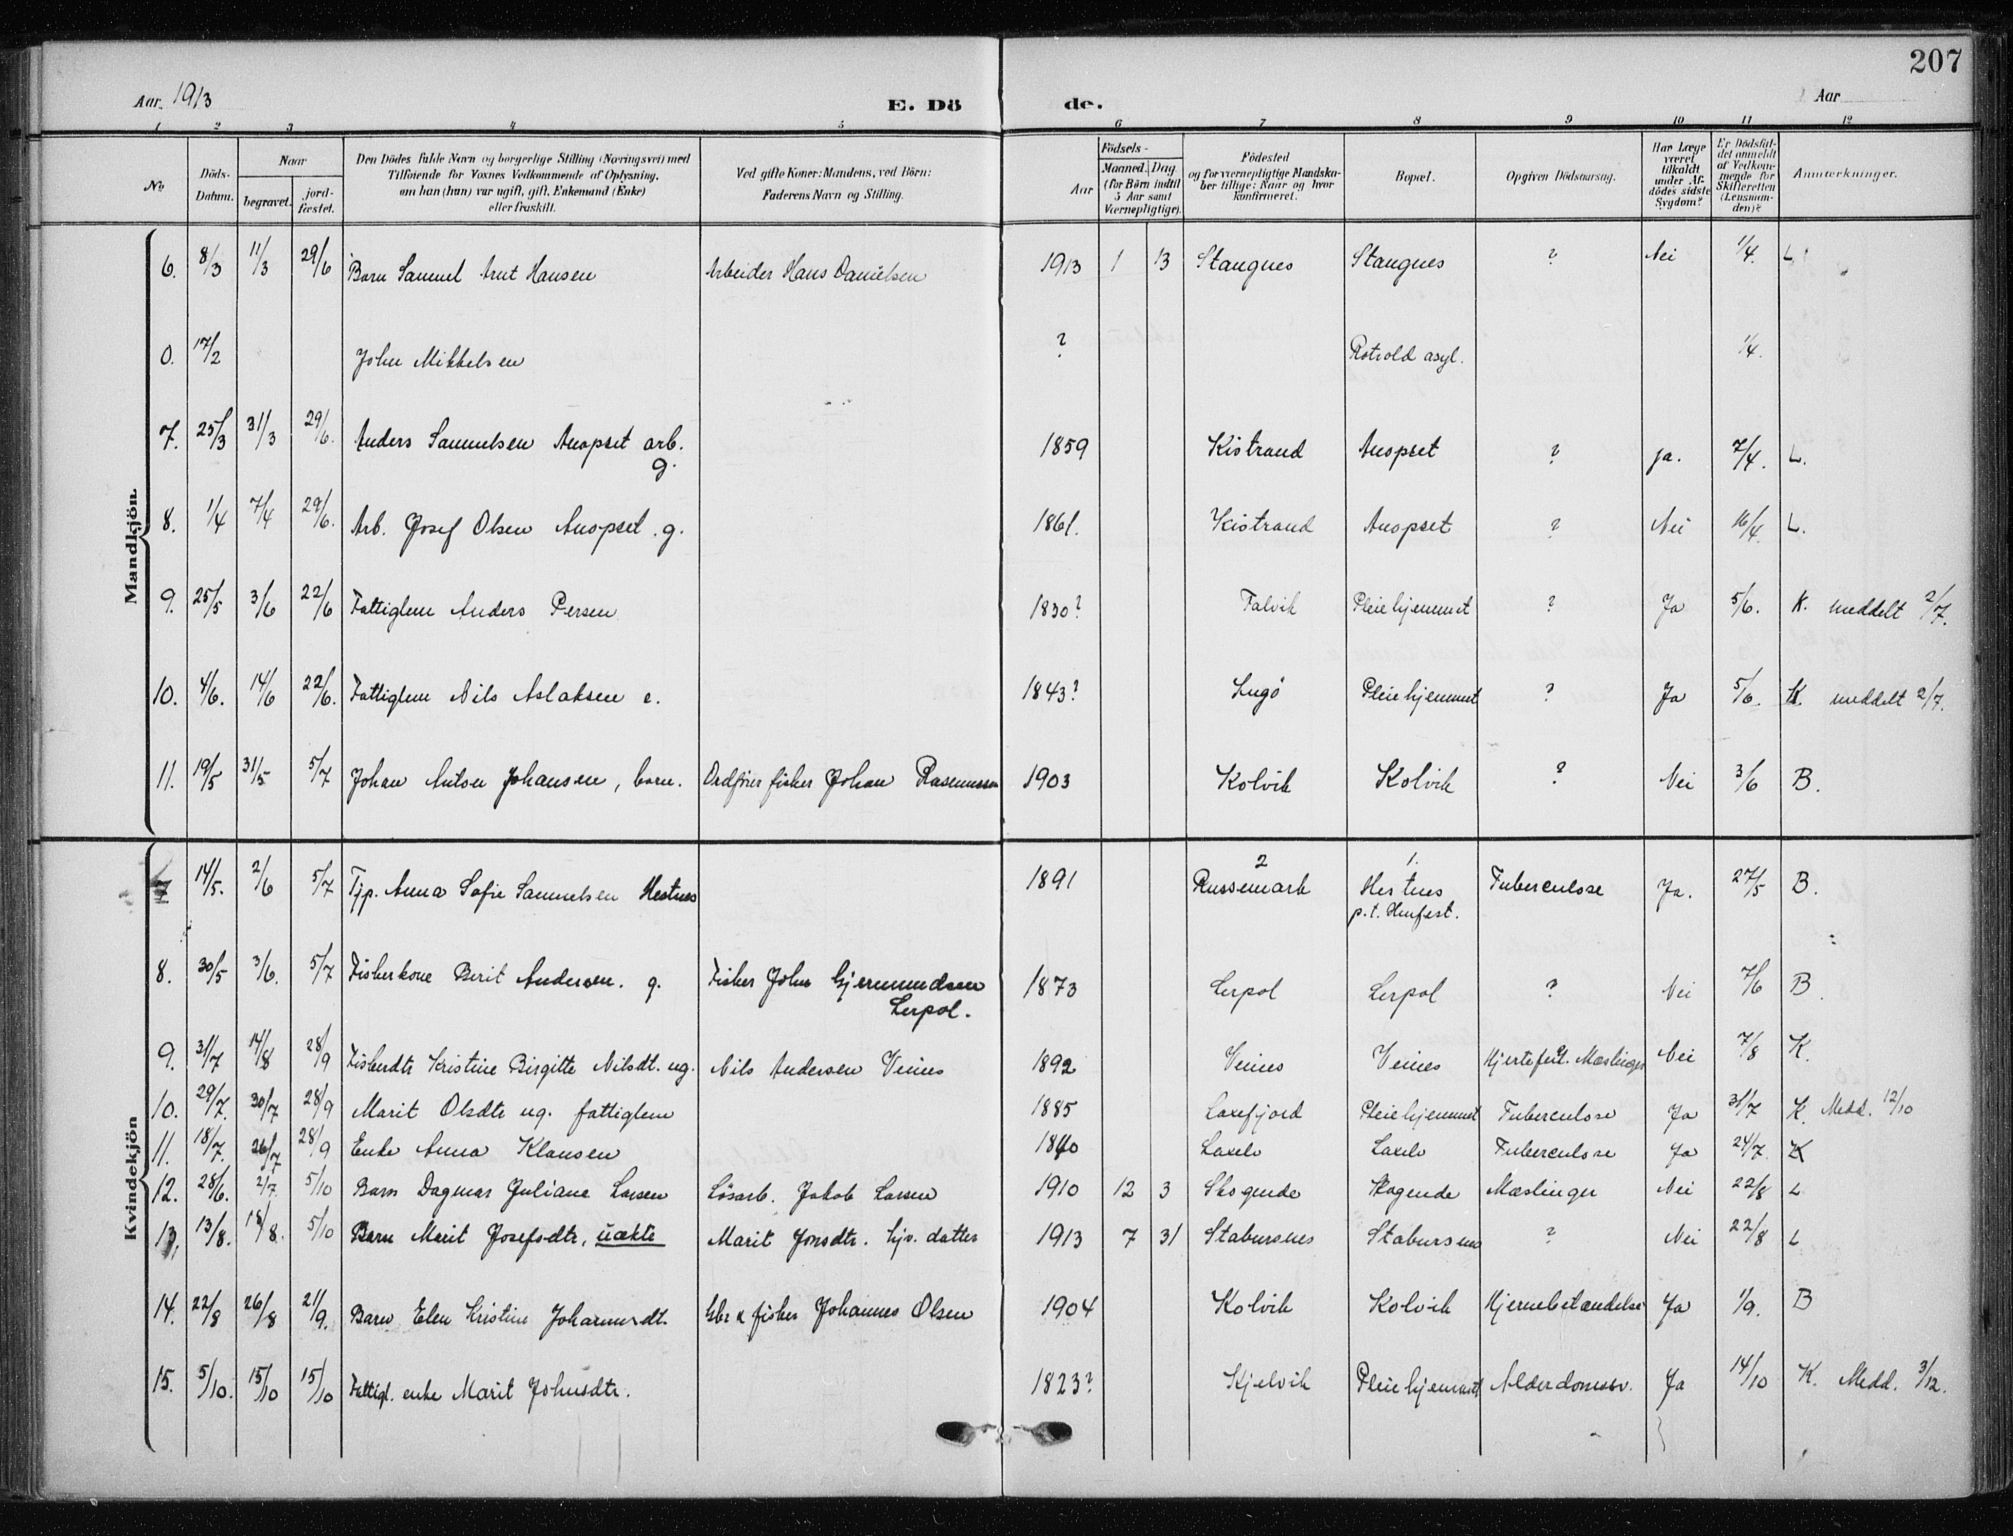 207
Aar. 1913 E. Dö de. Aar
1 2 3 4 5 6 7 8 9 10 11 12
No. Döds-Datum. Naar begravet. jord-fæstet. Den Dödes fulde Navn og borgerlige Stilling (Næringsvei) med Tilföiende for Voxnes Vedkommende af Oplysning, om han (hun) var ugift, gift, Enkemand (Enke) eller fraskilt. Ved gifte Koner: Mandens, ved Börn: Faderens Navn og Stilling. Födsels- Aar Maaned. Dag (for Börn indtil 5 Aar samt Værnepligtige). Födested og for værnepligtige Mandskaber tillige: Naar og hvor konfirmeret. Bopæl. Opgiven Dödsaarsag. Har Læge været tilkaldt under Afdödes sidste Sygdom? Er Dödsfaldet anmeldt af Vedkommende for Skifteretten (Lensmanden)? Anmerkninger.
Mandkjön.
6. 8/3 11/3 29/6 Barn Samuel Hansen Arbeider Hans Danielsen 1913 1 13 Stangnes Stangnes ? Nei 1/4. L.
0. 17/2 John Mikkelsen ? Rotvold asyl. 1/4.
7. 25/3 31/3 29/6. Anders Samuelsen Anopset arb. g. 1859 Kistrand Anopset ? ja. 7/4. L.
8. 1/4 7/4 29/6. Arb. Josef Olsen Anopset. g. 1861. Kistrand Anopset ? Nei 16/4. L.
9. 25/5 3/6 22/6 Fattiglem Anders Persen 1830? Talvik Pleiehjemmet ? Ja 5/6. K. meddelt 2/7.
10. 4/6. 14/6 22/6. Fattiglem Nils Aslaksen e. 1843? Ingö Pleiehjemmet ? Ja 5/6. K. meddelt 2/7.
11. 19/5 31/5 5/7 Johan Anton Johansen, barn. Ordfører fisker Johan Rasmussen 1903 Kolvik Kolvik ? Nei 3/6 B.
Kvindekjön
7 14/5. 2/6 5/7 Tjp. Anna Sofie Samuelsen Hestnes 1891 2 Russemark 1. Hestnes p.t. Hmfest. Tuberculose Ja. 27/5 B.
8. 30/5 3/6. 5/7 Fiskerkone Berit Andersen. g. Fisker John Gjermundsen Lerpol. 1873 Lerpol Lerpol ? Nei 7/6 B.
9. 31/7 14/8 28/9 Fiskerdtr Kristine Birgitte Nilsdt. ug. Nils Andersen Veines 1892 Veines Veines Hjertefeil. Mæslinger Nei 7/8 K.
10. 29/7. 30/7 28/9 Marit Olsdtr ug. fattiglem 1885 Laxefjord Pleiehjemmet Tuberculose Ja 31/7 K. Medd. 12/10
11. 18/7. 26/7 28/9 Enke Anna Klausen 1840 Laxelv Laxelv Tuberculose Ja 24/7. K
12. 28/6. 2/7. 5/10 Barn Dagmar Juliane Larsen Lösarb. Jakob Larsen 1910 12 3 Skogende Skogende Mæslinger Nei 22/8 L
13. 13/8. 18/8. 5/10 Barn Marit Josefsdtr, uækte Marit Jonsdtr. Gjv. datter 1913 7 31 Stabursnes Stabursnes ? Nei 22/8 L
14. 22/8 26/8 21/9. Barn Elen Kristine Johannesdt. Gbr & fisker Johannes Olsen 1904 Kolvik Kolvik Hjernebetændelse Ja 1/9. B
15. 5/10. 15/10 15/10 Fattigl. enke Marit Johnsdtr. 1823? Kjelvik Pleiehjemmet Alderdomssv. Ja 14/10 K. Medd. 3/12.